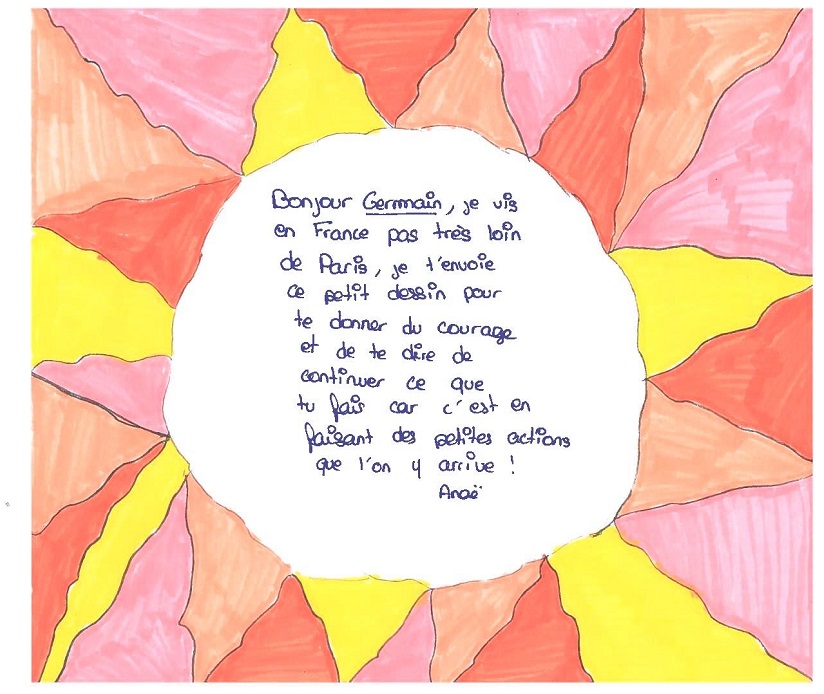 Bonjour Germain, je vis
en France pas très loin
de Paris, je t'envoie
ce petit dessin pour
te donner du courage
et de te dire de
continuer ce que
tu fais car c'est en
faisant des petites actions
que l'on y arrive !
Anaë